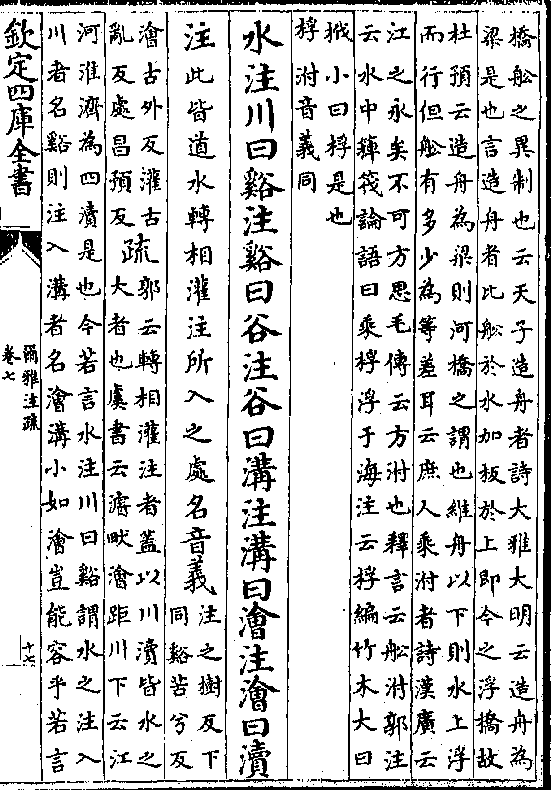 橋舩之異制也云天子造舟者詩大雅大明云造舟為
梁是也言造舟者比舩於水加板於上即今之浮橋故
杜預云造舟為梁則河橋之謂也維舟以下則水上浮
而行但舩有多少為等差耳云庶人乘泭者詩漢廣云
江之永矣不可方思毛傳云方泭也釋言云舫泭郭注
云水中䉬筏論語曰乘桴浮于海注云桴編竹木大曰
栰小曰桴是也
桴泭音義同
水注川曰谿注谿曰谷注谷曰溝注溝曰澮注澮曰瀆
注此皆道水轉相灌注所入之處名音義
注之樹反下
同谿苦兮反
澮古外反灌古
亂反處昌預反
疏
郭云轉相灌注者蓋以川瀆皆水之
大者也虞書云濬畎澮距川下云江
河淮濟為四瀆是也今若言水注川曰谿謂水之注入
川者名谿則注入溝者名澮溝小如澮豈能容乎若言
欽定四庫全書
爾雅注疏
卷七
十七